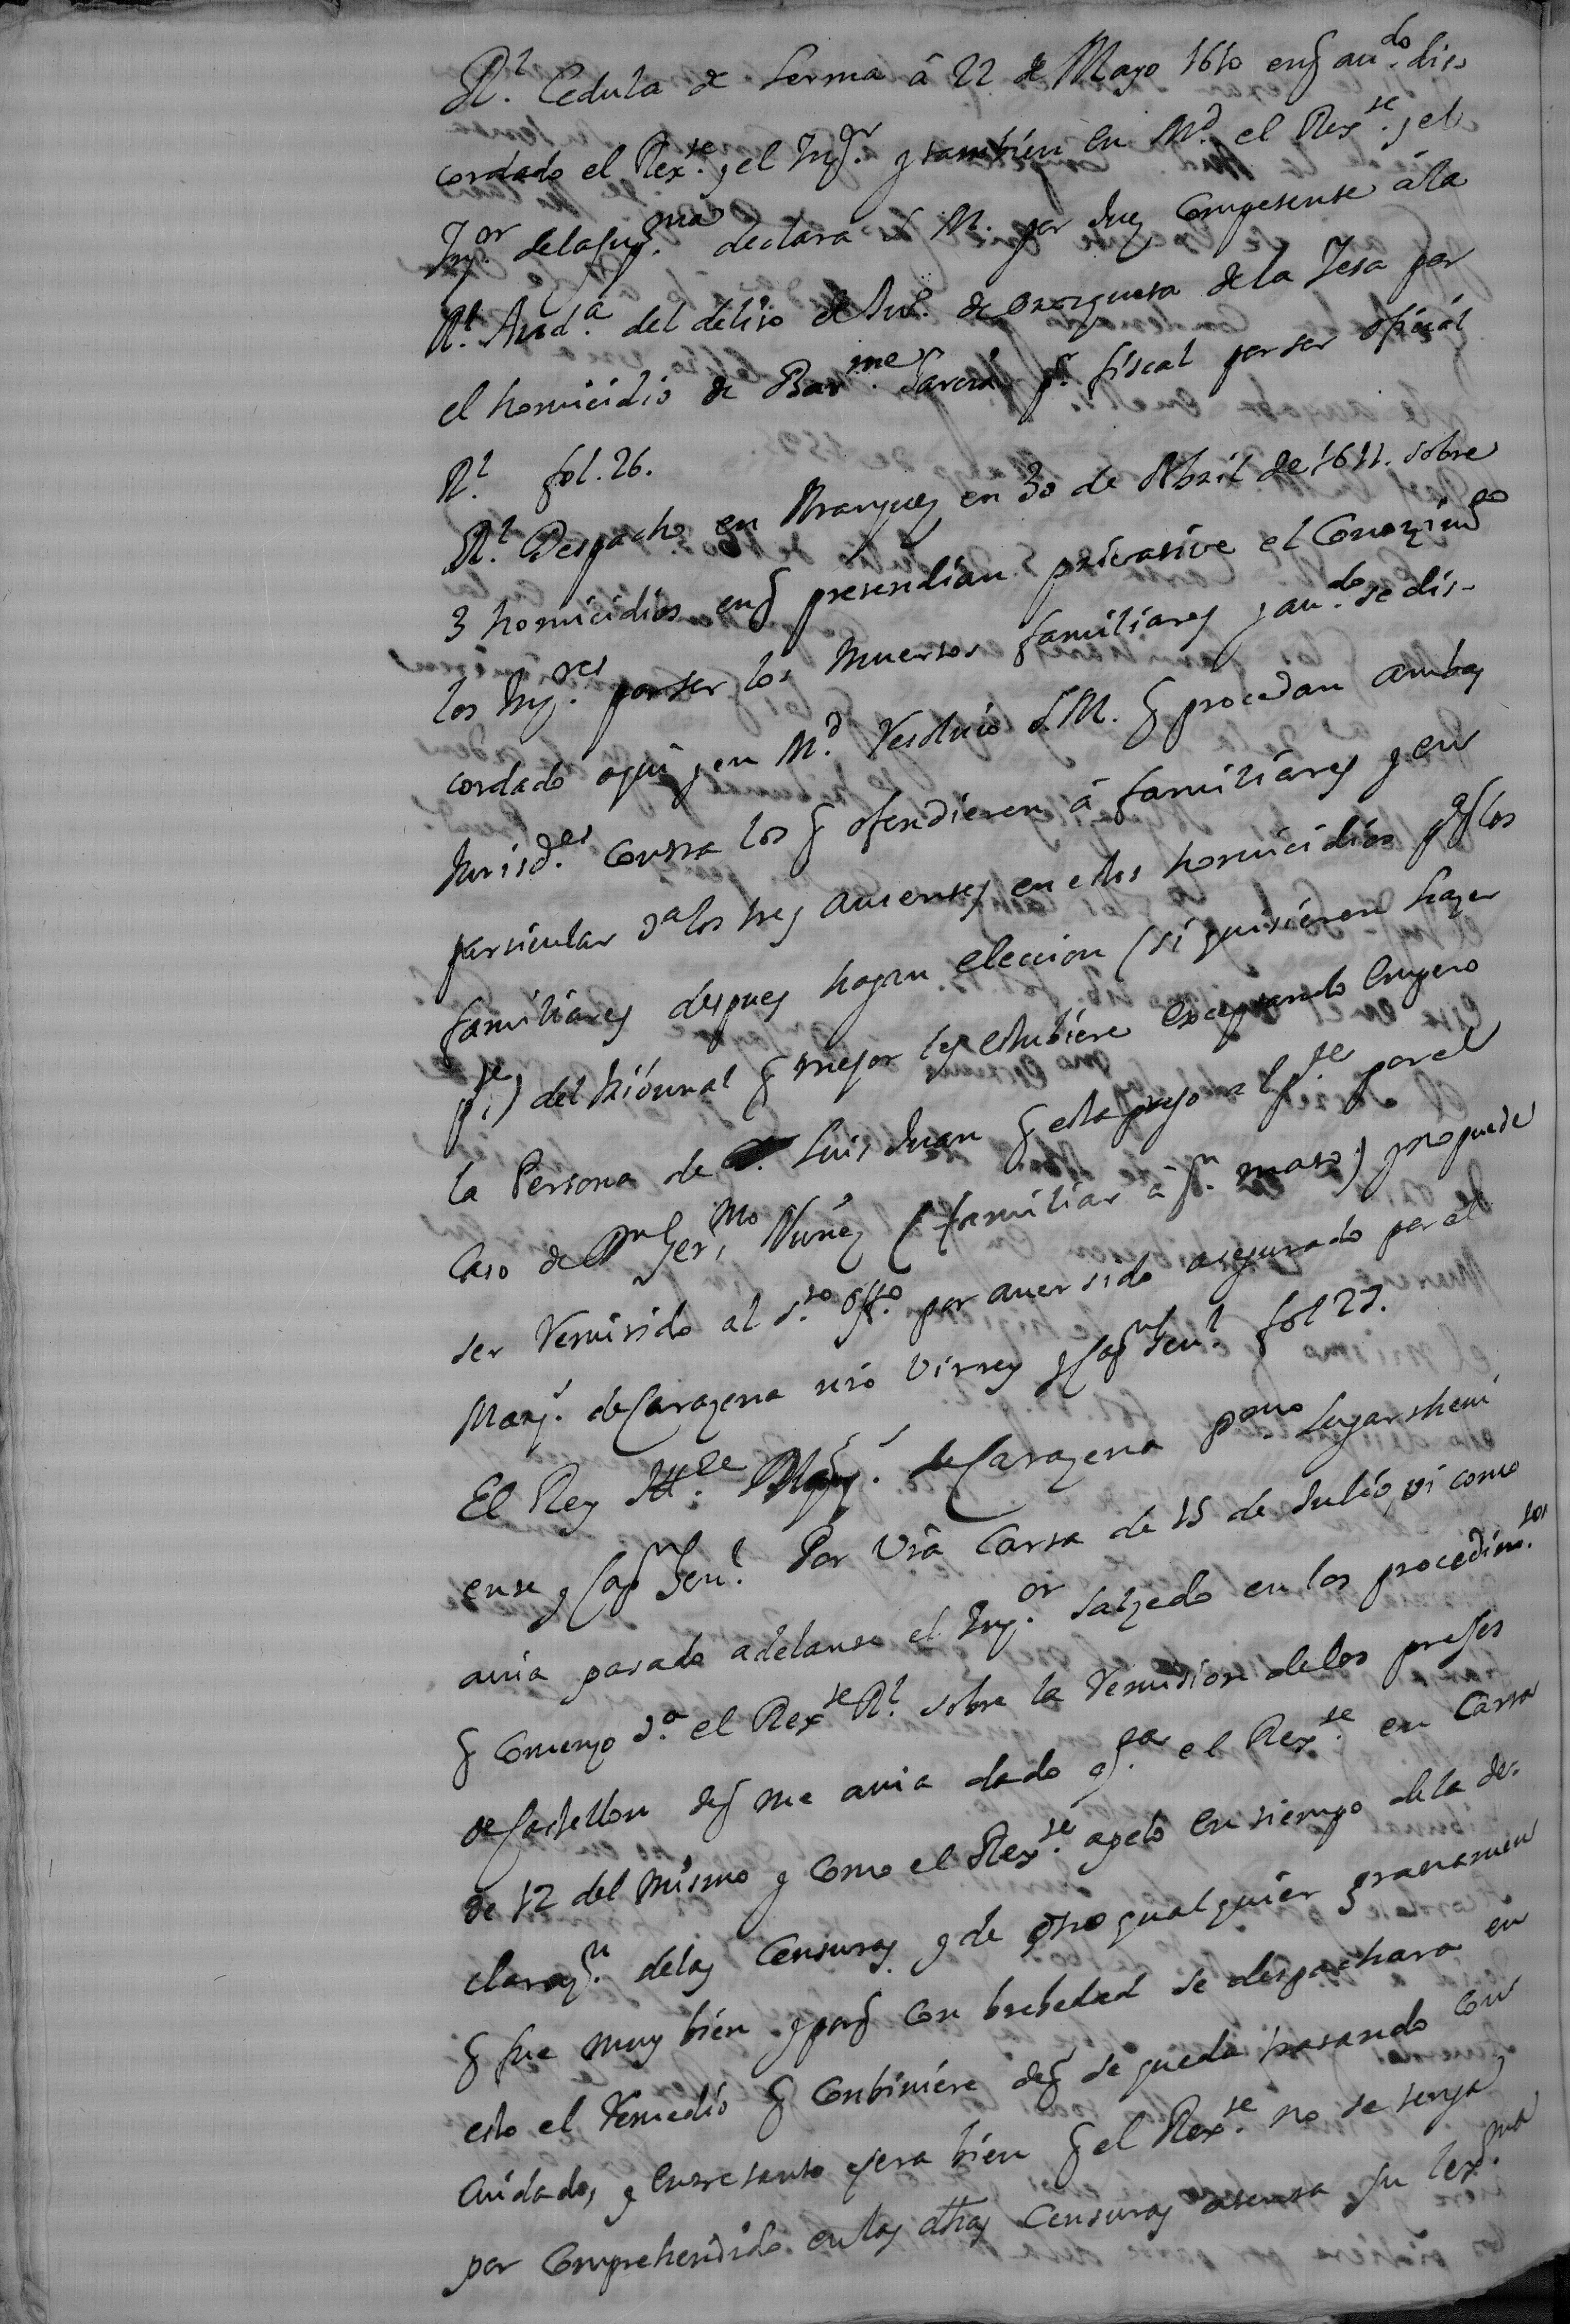 Rl. Cedula de Lerma â 22 de Mayo 1610 enq audo. dis
cordado el Rexte. y el Inqr. y tambien en Md. el Rexte. y el
Inqor. dela supma declara S M. por Juez Competente â la
Rl. Audª. del delito de de la Tesa por
el homicidio de Barme. Garcia pr. fiscal por ser oficial
Rl. fol. 26.
Rl. Despacho en Aranjuez en 30 de Abril de 1611. sobre
3 homicidios enq pretendian privative el Conozimto
los Inqres. por ser los muertos familiares y audo. se dis-
cordado aqui y en Md. Resolvio S.M. q procedan ambas
Jurisdes. contra los q ofendieren â familiares y en
particular Jª los tres ausentes en estos homicidios pªq los
familiares despues hagan eleccion (si quisieren hazer
pte.) del tribunal q mejor les estubiere exceptando empero
la Persona de Luis Juan q esta preso al pte. por el
Caso de Germo. Nuñez (familiar â qn. mato) y no puede
ser Remitido al Sto. Offo. por aver sido asegurado por el
Marqs. de Carazena nro Virrey y Capn Genl. fol 27.
El Rey Illte. Marqs. de Carazena pmo. lugartheni
ente y Capn Genl. Por Vrâ Carta de 15 de Julio, vi como
avia pasado adelante el Inqor. Salzedo en los procedimtos.
q Comenzo Jª. el Rexte Rl. sobre la Remision delos presos
de Castellon deq me avia dado qta. el Rexte. en Carta
de 12 del mismo y como el Rexte. apelo en tiempo dela de-
clarazn. delas Censuras y de otro qualquier gravamen
q fue muy bien y porq con brebedad se despachara en
esto el Remedio q conbiniere deq se queda tratando con
Cuidado, y entretanto sera bien q el Rexte. no se tenga
por Comprehendido enlas dthas Censuras atenta su lexma